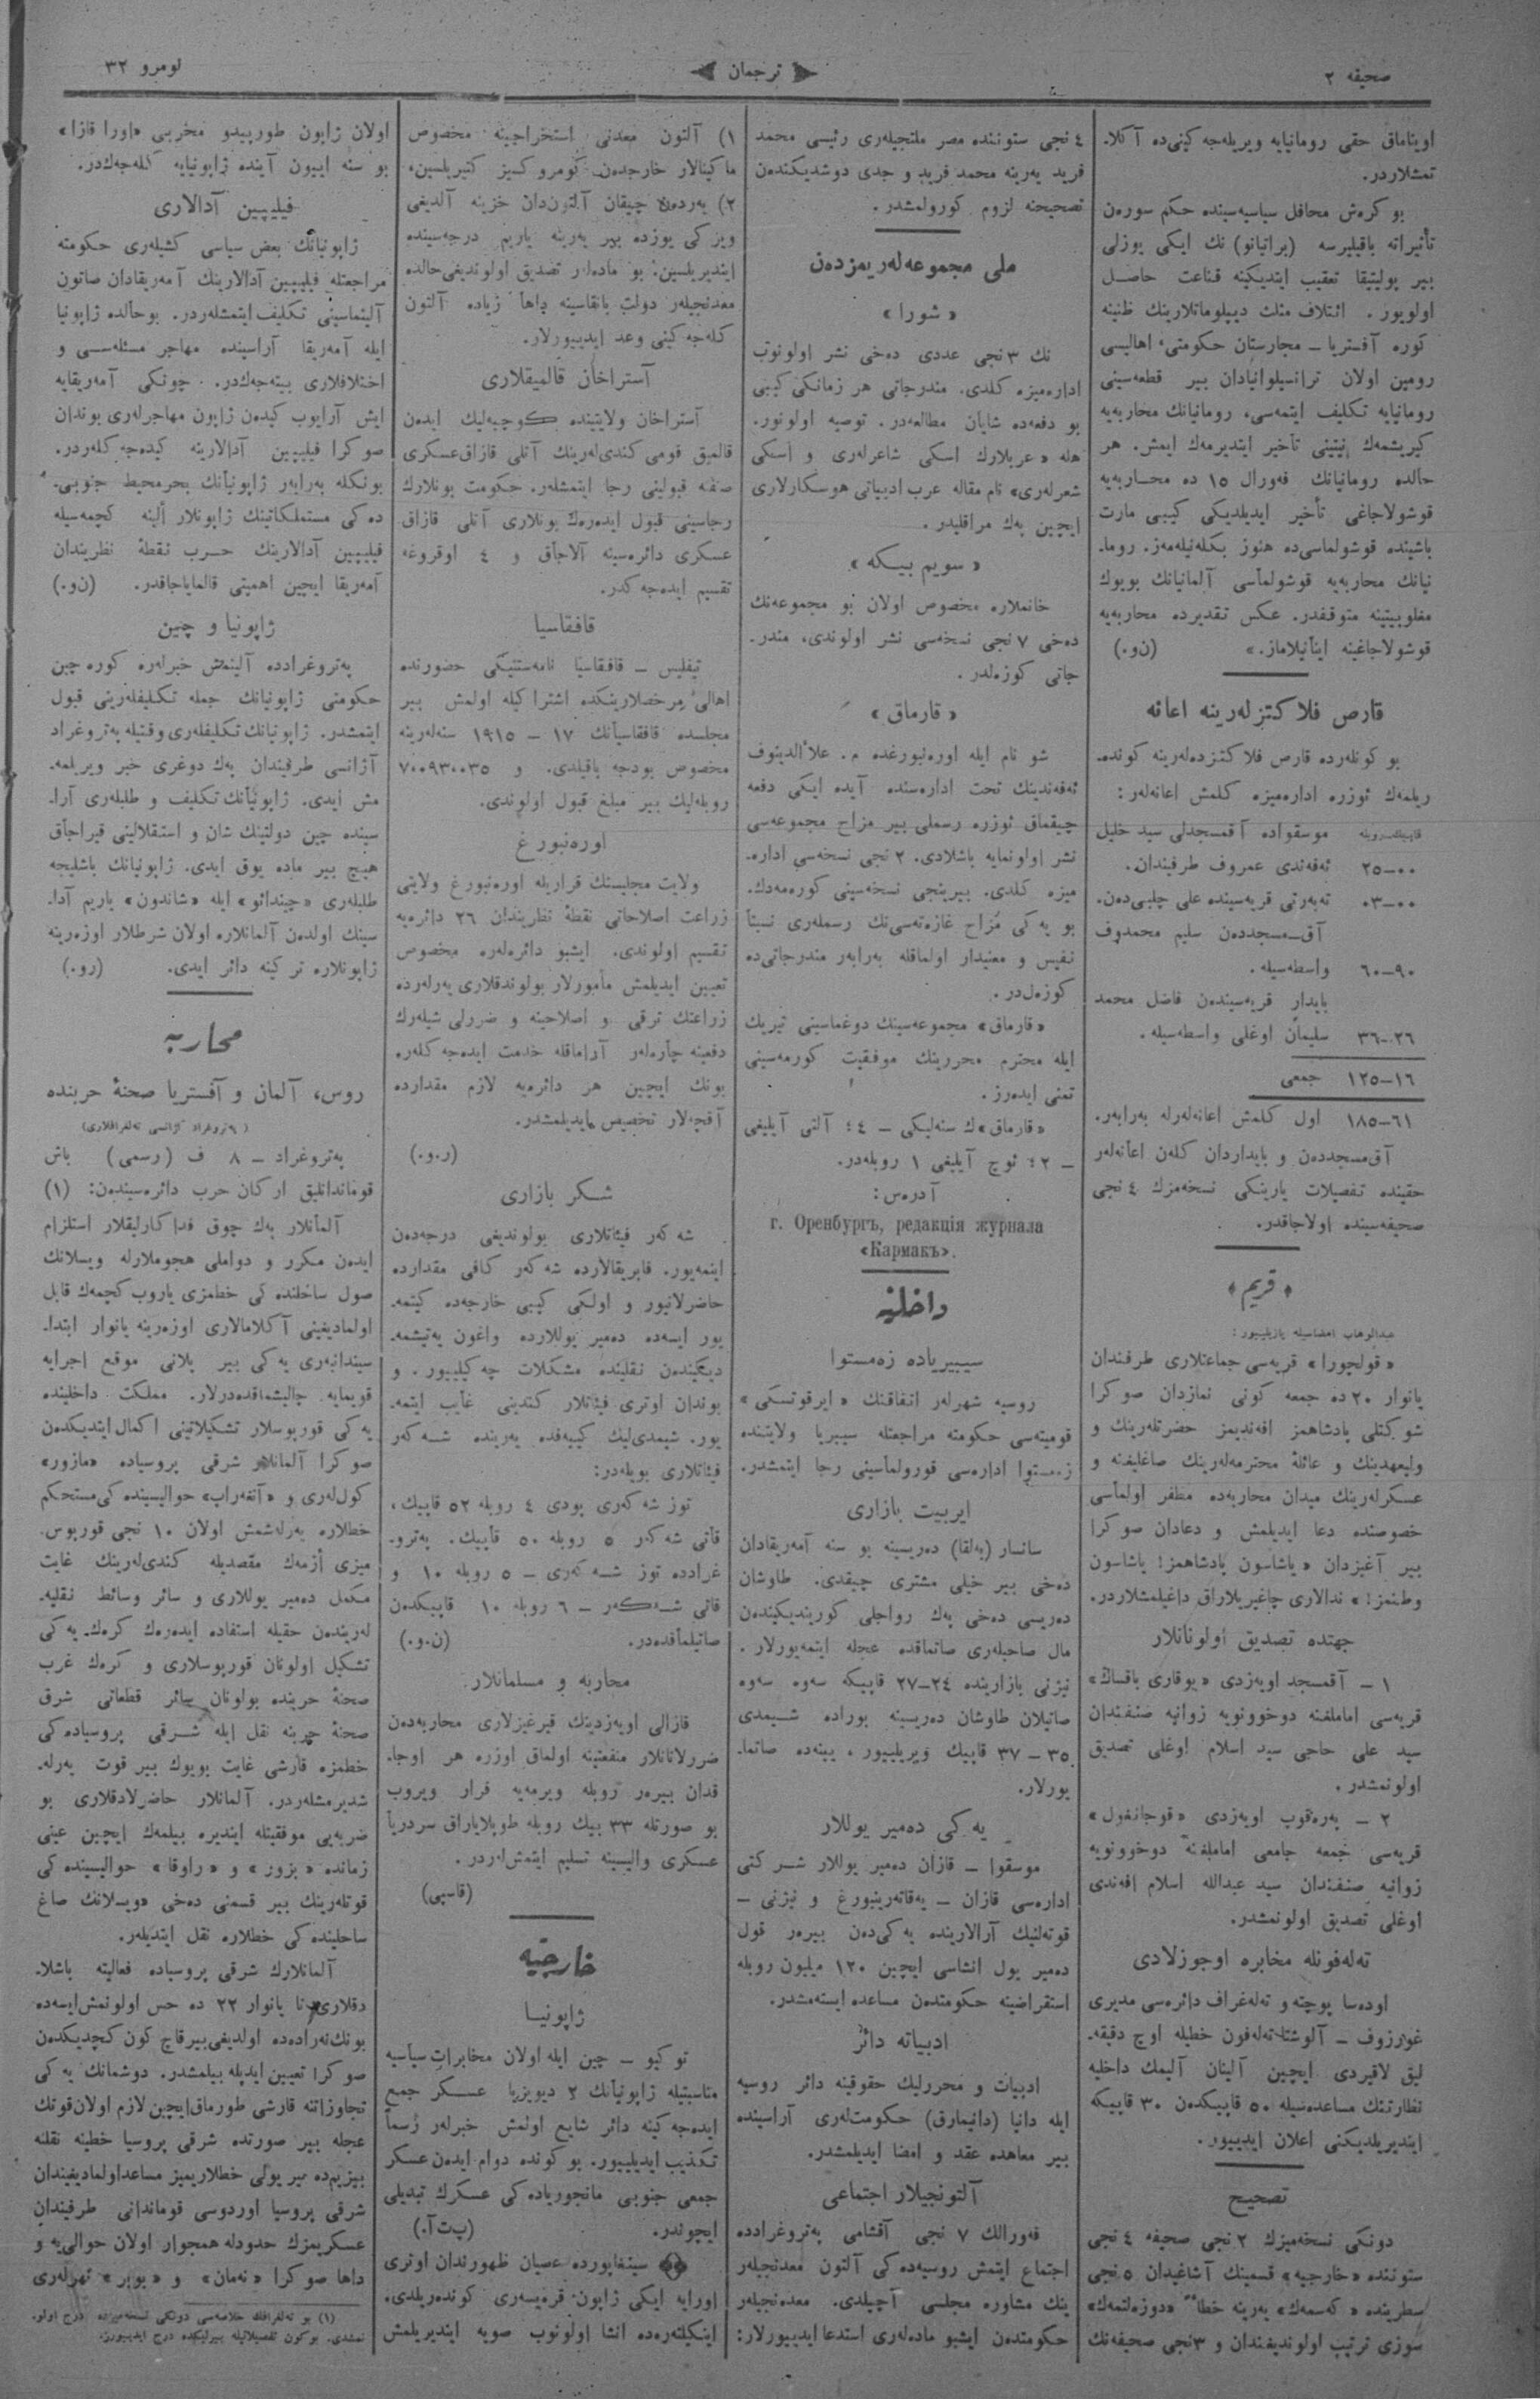 صحیفه ۲
ترجمان
نومرو ۳۲
اویناماق حقی رومانیایه ویریله‌جه كینی‌ده آكلا-
تمشلاردر.
بو كره‌ش محافل سیاسیه‌سینده حكم سوره‌ن
تأثیراته باقیلیرسه (براتیانو) نك ایكی یوزلی
بیر پولیتیقا تعقیب ایتدیكینه قناعت حاصل
اولویور. ائتلاف مثلث دیپلوماتلارینك ظنینه
كوره آفستریا ـ مجارستان حكومتی، اهالیسی
رومین اولان ترانسیلوانیادان بیر قطعه‌سینی
رومانیایه تكلیف ایتمه‌سی، رومانیانك محاربه‌یه
كیریشمه‌ك نیتینی تأخیر ایتدیرمه‌ك ایمش. هر
حالده رومانیانك فه‌ورال ۱۵ ده محاربه‌یه
قوشولاجاغی تأخیر ایدیلدیكی كیبی مارت
باشینده قوشولماسی‌ده هنوز بكله‌نیله‌مه‌ز. روما-
نیانك محاربه‌یه قوشولماسی آلمانیانك بویوك
مغلوبیتینه متوقفدر. عكس تقدیرده محاربه‌یه
قوشولاجاغینه اینانیلاماز.» (ن‌و.)
قارص فلاكتزله‌رینه اعانه
بو كونله‌رده قارص فلاكتزده‌له‌رینه كونده-
ریلمه‌ك ئوزره اداره‌میزه كلمش اعانه‌له‌ر:
قاپیك‌ـ‌روبله موسقواده آقمسجدلی سید خلیل
۰۰–۲۵ ئه‌فه‌ندی عمروف طرفیندان.
۰۰–۰۳ ته‌به‌رتی قریه‌سینده علی چلبی‌دەن.
آق‌ـ‌مسجددەن سلیم محمدوف
۹۰–۶۰ واسطه‌سیله.
بایدار قریه‌سیندەن فاضل محمد
۲۶–۳۶ سلیمان اوغلی واسطه‌سیله.
۱۶–۱۲۵ جمعی
۶۱–۱۸۵ اول كلمش اعانه‌له‌رله به‌رابه‌ر.
آق‌مسجددەن و بایداردان كله‌ن اعانه‌له‌ر
حقینده تفصیلات یارینكی نسخه‌مزك ٤ نجی
صحیفه‌سینده اولاجاقدر.
«قریم»
عبدالوهاب امضاسیله یازیلییور:
«قولچورا» قریه‌سی جماعتلاری طرفندان
یانوار ۲۰ ده جمعه كونی نمازدان صوكرا
شوكتلی پادشاهمز افه‌ندیمز حضرتله‌رینك و
ولیعهدینك و عائلهٔ محترمه‌له‌رینك صاغلیغنه و
عسكرله‌رینك میدان محاربه‌ده مظفر اولماسی
خصوصنده دعا ایدیلمش و دعادان صوكرا
بیر آغیزدان «یاشاسون پادشاهمز! یاشاسون
وطنمز!» ندالاری چاغیریلاراق داغیلمشلاردر.
جهتده تصدیق اولونانلار
۱ – آقمسجد اویه‌زدی «یوقاری یاقساڭ»
قریه‌سی اماملغنه دوخوونویه زوانیه صنفندان
سید علی حاجی سید اسلام اوغلی تصدیق
اولونمشدر.
۲ – په‌ره‌قوپ اویه‌زدی «قوجانغول»
قریه‌سی جمعه جامعی اماملغنه دوخوونویه
زوانیه صنفندان سید عبدالله اسلام افه‌ندی
اوغلی تصدیق اولونمشدر.
ته‌له‌فونله مخابره اوجوزلادی
اوده‌سا پوچته و ته‌له‌غراف دائره‌سی مدیری
غورزوف – آلوشتا ته‌له‌فون خطیله اوچ دقیقه-
لیق لاقیردی ایچین آلینان آلیمك داخلیه
نظارتنك مساعده‌سیله ۵۰ قاپیكدەن ۳۰ قاپیكه
ایندیریلدیكنی اعلان ایدییور.
تصحیح
دونكی نسخه‌میزك ۲ نجی صحیفه ٤ نجی
ستوننده «خارجیه» قسمینك آشاغیدان ۵ نجی
سطرینده «كه‌سمه‌ك» یه‌رینه خطاً «دوزه‌لتمه‌ك»
سوزی ترتیب اولوندیغندان و ۳ نجی صحیفه‌نك
٤ نجی ستوننده مصر ملتجیله‌ری رئیسی محمد
فرید یه‌رینه محمد فرید و جدی دوشدیكندەن
تصحیحنه لزوم كورولمشدر.
ملی مجموعه‌له‌ریمزدەن
«شورا»
نك ۳ نجی عددی دەخی نشر اولونوب
اداره‌میزه كلدی. مندرجاتی هر زمانكی كیبی
بو دفعه‌ده شایان مطالعه‌در. توصیه اولونور.
هله «عربلارك اسكی شاعرله‌ری و اسكی
شعرله‌ری» نام مقاله عرب ادبیاتی هوسكارلاری
ایچین په‌ك مراقلیدر.
«سویم بیكه»
خانملاره مخصوص اولان بو مجموعه‌نك
دەخی ۷ نجی نسخه‌سی نشر اولوندی، مندر-
جاتی كوزه‌لدر.
«قارماق»
شو نام ایله اوره‌نبورغده م. علاءالدینوف
ئه‌فه‌ندینك تحت اداره‌سنده آیده ایكی دفعه
چیقماق ئوزره رسملی بیر مزاح مجموعه‌سی
نشر اولونمایه باشلادی. ۲ نجی نسخه‌سی اداره-
میزه كلدی. بیرینجی نسخه‌سینی كوره‌مه‌دك.
بو یه‌كی مزاح غازه‌ته‌سی‌نك رسمله‌ری نسبتاً
نفیس و معنیدار اولماقله به‌رابه‌ر مندرجاتی‌ده
كوزه‌ل‌در.
«قارماق» مجموعه‌سینك دوغماسینی تبریك
ایله محترم محررینك موفقیت كورمه‌سینی
تمنی ایدەرز.
«قارماق»ك سنه‌لیكی – ٤؛ آلتی آیلیغی
– ۲؛ ئوچ آیلیغی ۱ روبله‌در.
آدرەس:
г. Оренбургъ, редакція журнала
«Кармакъ».
داخلیه
سیبیریاده زه‌مستوا
روسیه شهرله‌ر اتفاقنك «ایرقوتسكی»
قومیته‌سی حكومته مراجعتله سیبریا ولایتنده
زمستوا اداره‌سی قورولماسینی رجا ایتمشدر.
ایربیت بازاری
سانسار (یه‌لقا) دەریسینه بو سنه آمه‌ریقادان
دەخی بیر خیلی مشتری چیقدی. طاوشان
دەریسی دەخی په‌ك رواجلی كوریندیكیندەن
مال صاحبله‌ری صاتماقده عجله ایتمه‌یورلار.
نیژنی بازارینده ۲٤–۲۷ قاپیكه سه‌وه سه‌وه
صاتیلان طاوشان دەریسینه بوراده شیمدی
۳۵ – ۳۷ قاپیك ویریلییور، یینه‌ده صاتما-
یورلار.
یه‌كی دەمیر یوللار
موسقوا – قازان دەمیر یوللار شركتی
اداره‌سی قازان – یه‌قاته‌رینبورغ و نیژنی –
قوته‌لنیك آرالارینده یه‌كی‌دەن بیره‌ر قول
دەمیر یول انشاسی ایچین ۱۲۰ میلیون روبله
استقراضینه حكومتدەن مساعده ایسته‌مشدر.
ادبیاته دائر
ادبیات و محررلیك حقوقینه دائر روسیه
ایله دانیا (دانیمارق) حكومت‌له‌ری آراسینده
بیر معاهده عقد و امضا ایدیلمشدر.
آلتونجیلار اجتماعی
فه‌ورالك ۷ نجی آقشامی په‌تروغرادده
اجتماع ایتمش روسیه‌ده‌كی آلتون معدنجیله‌ر
ینك مشاوره مجلسی آچیلدی. معدەنجیله‌ر
حكومتدەن ایشبو ماده‌له‌ری استدعا ایدییورلار:
۱) آلتون معدنی استخراجینه مخصوص
ماكینالار خارجدەن كومروكسز كتیریلسین،
۲) یه‌ردەن چیقان آلتون‌دان خزینه آلدیغی
ویركی یوزده بیر یه‌رینه یاریم درجه‌سینده
ایندیریلسین؛ بو ماده‌لر تصدیق اولوندیغی‌حالده
معدنجیله‌ر دولت بانقاسینه داها زیاده آلتون
كله‌جه‌كینی وعد ایدییورلار.
آستراخان قالمیقلاری
آستراخان ولایتینده كوچبه‌لیك ایدەن
قالمیق قومی كندی‌له‌رینك آتلی قازاق‌عسكری
صنفه قبولینی رجا ایتمشله‌ر. حكومت بونلارك
رجاسینی قبول ایدەرەك بونلاری آتلی قازاق
عسكری دائره‌سینه آلاجاق و ٤ اوقروغه
تقسیم ایدەجه‌كدر.
قافقاسیا
تیفلیس – قافقاسیا نامه‌ستنیكی حضورنده
اهالی مرخصلارینكده اشتراكیله اولمش بیر
مجلسده قافقاسیانك ۱۷ – ۱۹۱۵ سنه‌له‌رینه
مخصوص بودجه باقیلدی. و ۷۰۰۹۳۰۰۳۵
روبله‌لیك بیر مبلغ قبول اولوندی.
اوره‌نبورغ
ولایت مجلیسنك قراریله اوره‌نبورغ ولایتی
زراعت اصلاحاتی نقطهٔ نظریندان ۲۶ دائره‌یه
تقسیم اولوندی. ایشبو دائره‌له‌ره مخصوص
تعیین ایدیلمش مأمورلار بولوندقلاری یه‌رله‌رده
زراعتك ترقی و اصلاحینه و ضررلی شیله‌رك
دفعینه چاره‌له‌ر آراماقله خدمت ایدەجه‌كله‌ر.
بونك ایچین هر دائره‌یه لازم مقدارده
آقچه‌لار تخصیص ایدیلمشدر.
(ر.و.)
شكر بازاری
شه‌كه‌ر فیئاتلاری بولوندیغی درجه‌دەن
اینمه‌یور. فابریقالارده شه‌كه‌ر كافی مقدارده
حاضرلانیور و اولكی كیبی خارجه‌ده كیتمه-
یور ایسه‌ده دەمیر یوللارده واغون یه‌تیشمه-
دیكیندەن نقلینده مشكلات چه‌كیلییور. و
بوندان اوتری فیئاتلار كندینی غایب ایتمه-
یور. شیمدی‌لیك كییه‌فده یه‌رینده شه‌كه‌ر
فیئاتلاری بویله‌در:
توز شه‌كه‌ری پودی ٤ روبله ۵۲ قاپیك،
قاتی شه‌كه‌ر ۵ روبله ۵۰ قاپیك. په‌ترو-
غرادده توز شه‌كه‌ری – ۵ روبله ۱۰ و
قاتی شه‌كه‌ر – ۶ روبله ۱۰ قاپیكدەن
صاتیلماقده‌در. (ن.و.)
محاربه و مسلمانلار
قازالی اویه‌زدینك قیرغیزلاری محاربه‌دەن
ضررلانانلار منفعتینه اولماق اوزره هر اوجا-
قدان بیره‌ر روبله ویرمه‌یه قرار ویروب
بو صورتله ۳۳ بیك روبله طوپلایاراق سردریا
عسكری والیسینه تسلیم ایتمش‌له‌ردر.
(قاسپی)
خارجیه
ژاپونیا
توكیو – چین ایله اولان مخابرات سیاسیه
مناسبتیله ژاپونیانك ۲ دیویزیا عسكر جمع
ایدەجه‌كینه دائر شایع اولمش خبرله‌ر رسماً
تكذیب ایدیلییور. بو كونده دوام ایدەن عسكر
جمعی جنوبی مانجوریاده‌كی عسكرك تبدیلی
ایچوندر. (پ‌ت‌آ.)
سینغاپورده عصیان ظهورندان اوتری
اورایه ایكی ژاپون قره‌یسه‌ری كوندەریلدی.
اینكیلتەرەده انشا اولونوب صویه ایندیریلمش
اولان ژاپون طورپیدو مخربی «اورا قازا»
بو سنه اییون آینده ژاپونیایه كله‌جه‌كدر.
فیلیپین آدالاری
ژاپونیانك بعض سیاسی كشیله‌ری حكومته
مراجعتله فیلیپین آدالارینك آمه‌ریقادان صاتون
آلینماسینی تكلیف ایتمشله‌ردر. بوحالده ژاپونیا
ایله آمه‌ریقا آراسینده مهاجر مسئله‌سی و
اختلافلاری بیته‌جه‌كدر. چونكی آمه‌ریقایه
ایش آرایوب كیدەن ژاپون مهاجرله‌ری بوندان
صوكرا فیلیپین آدالارینه كیدەجه‌كله‌ردر.
بونكله به‌رابه‌ر ژاپونیانك بحرمحیط جنوبی-
ده‌كی مستملكاتینك ژاپونلار الینه كچمه‌سیله
فیلیپین آدالارینك حرب نقطهٔ نظریندان
آمه‌ریقا ایچین اهمیتی قالمایاجاقدر. (ن‌و.)
ژاپونیا و چین
په‌تروغرادده آلینمش خبرله‌ره كوره چین
حكومتی ژاپونیانك جمله تكلیفله‌رینی قبول
ایتمشدر. ژاپونیانك تكلیفله‌ری وقتیله په‌تروغراد
آژانسی طرفیندان په‌ك دوغری خبر ویریلمه-
مش ایدی. ژاپونیانك تكلیف و طلبله‌ری آرا-
سینده چین دولتینك شان و استقلالینی قیراجاق
هیچ بیر ماده یوق ایدی. ژاپونیانك باشلیجه
طلبله‌ری «چیندائو» ایله «شاندون» یاریم آدا-
سینك اولدەن آلمانلاره اولان شرطلار اوزه‌رینه
ژاپونلاره تركینه دائر ایدی. (رو.)
محاربه
روس، آلمان و آفستریا صحنهٔ حربنده
(په‌تروغراد آژانسی ته‌لغرافلاری)
په‌تروغراد – ۸ ف (رسمی) باش
قوماندانلیق اركان حرب دائره‌سیندەن: (۱)
آلمانلار په‌ك چوق فداكارلیقلار استلزام
ایدەن مكرر و دواملی هجوملارله ویسلانك
صول ساحلنده‌كی خطمزی یاروب كچمه‌ك قابل
اولمادیغینی آكلامالاری اوزه‌رینه یانوار ابتدا-
سیندانبه‌ری یه‌كی بیر پلانی موقع اجرایه
قویمایه چالیشماقده‌درلار. مملكت داخلینده
یه‌كی قورپوسلار تشكیلاتینی اكمال ایتدیكدەن
صوكرا آلمانلار شرقی پروسیاده «مازور»
كول‌له‌ری و «آنغه‌راپ» حوالیسینده‌كی‌مستحكم
خطلاره یه‌رله‌شمش اولان ۱۰ نجی قورپوس-
میزی أزمه‌ك مقصدیله كندی‌له‌رینك غایت
مكمل دەمیر یوللاری و سائر وسائط نقلیه-
له‌ریندەن حقیله استفاده ایدەرەك كرك یه‌كی
تشكیل اولونان قورپوسلاری و كرك غرب
صحنهٔ حربنده بولونان سائر قطعاتی شرق
صحنهٔ حربنه نقل ایله شرقی پروسیاده‌كی
خطمزه قارشی غایت بویوك بیر قوت یه‌رله-
شدیرمشله‌ردر. آلمانلار حاضرلادقلاری بو
ضربه‌یی موفقیتله ایندیره بیلمه‌ك ایچین عینی
زمانده «بزور» و «راوقا» حوالیسینده‌كی
قوتله‌رینك بیر قسمنی دەخی «ویسلانك صاغ
ساحلینده‌كی خطلاره نقل ایتدیله‌ر.
آلمانلارك شرقی پروسیاده فعالیته باشلا-
دقلاری تا یانوار ۲۲ ده حس اولونمش‌ایسه‌ده
بونك‌نه‌راده‌ده اولدیغی‌بیرقاچ كون كچدیكدەن
صوكرا تعیین ایدیله بیلمشدر. دوشمانك یه‌كی
تجاوزاتنه قارشی طورماق‌ایچین لازم اولان‌قوتك
عجله بیر صورتده شرقی پروسیا خطینه نقلنه
بیزیم‌ده‌میر یولی خطلاریمیز مساعداولمادیغیندان
شرقی پروسیا اوردوسی قوماندانی طرفیندان
عسكریمزك حدودله همجوار اولان حوالی‌یه و
داها صوكرا «نه‌مان» و «بوبر» نهرله‌ری
(۱) بو ته‌لغرافك خلاصه‌سی دونكی نسخه‌میزده درج اولو-
نمشدی. بوكون تفصیلاتیله بیرلیكده درج ایدییورز.